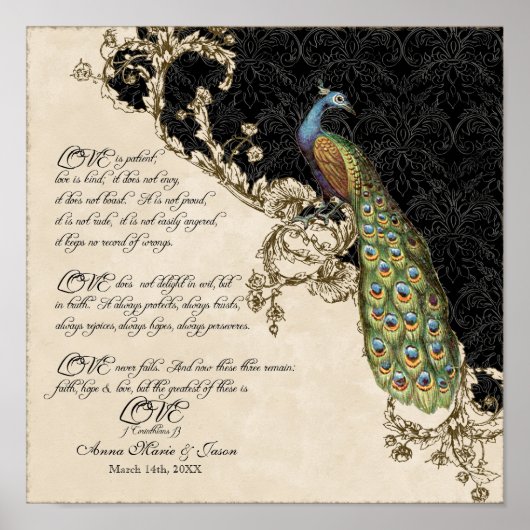 LOVE is patient;
love is kind, it does not envy,
it does not boast. It is not proud,
it is not rude, it is not easily angered,
it keeps no record of wrongs.
LOVE does not delight in evil, but
in truth. It always protects, always trusts,
always rejoices, always hopes, always perseveres.
LOVE never fails. And now these three remain:
faith, hope & love, but the greatest of these is
LOVE
1 Corinthians 13
Anna Marie & Jason
March 14th, 20XX